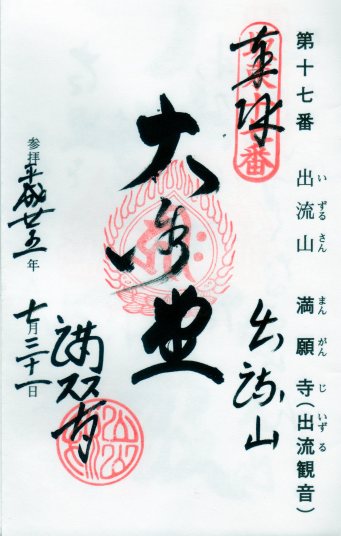 第十七番 出流山 満願寺(出流観音)
いずるさん まんがんじ いずる
奉拝
坂東十七番
大悲堂
出流山
満願寺
参拝平成廿五年
七月三十一日